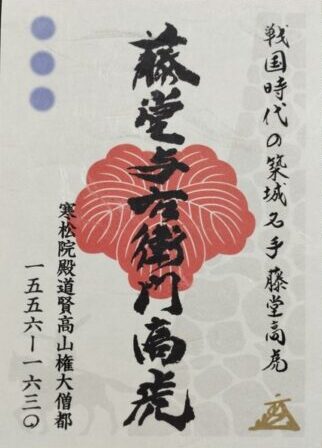 戦国時代の築城名手藤堂高虎
藤堂与右衛門高虎
寒松院殿道賢高山権大僧都
一五五六ー一六三〇